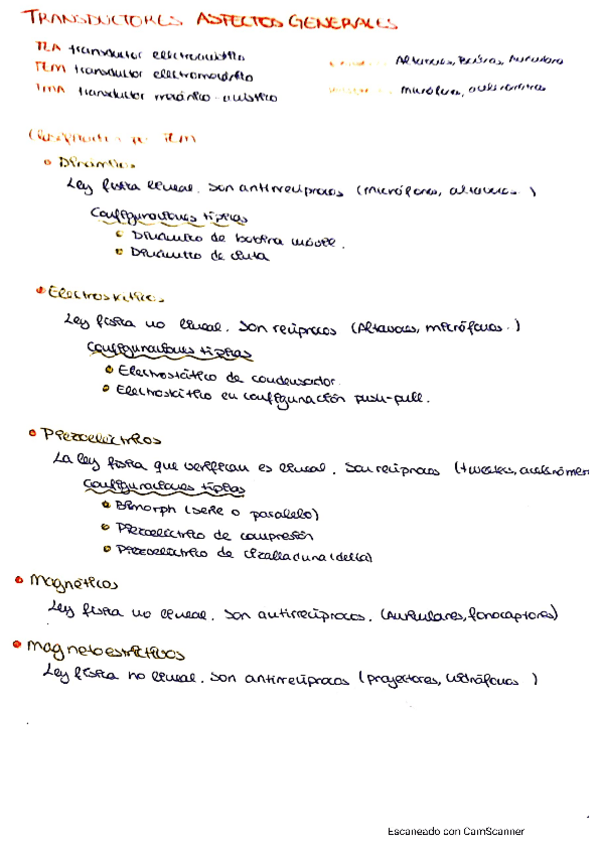 TRANSDUCTORES ASPECTOS GENERALES
TEA transductor electroacústico
Altavoces, Bocinas, Auriculares
TEM transductor electromecánico
micrófonos, acelerómetros
TMA transductor mecánico-acústico
Clasificación TEM
Dinámicos
Ley física lineal. Son antirrecíprocos (micrófonos, altavoces)
Configuraciones típicas
Dinámico de bobina móvil.
Dinámico de cinta
Electrostáticos
Ley física no lineal. Son recíprocos (Altavoces, micrófonos.)
Configuraciones típicas
Electrostático de condensador.
Electrostático en configuración push-pull.
Piezoeléctricos
La ley física que verifican es lineal. Son recíprocos (tweeters,
Configuraciones típicas
Bimorph (serie o paralelo)
Piezoeléctrico de compresión
Piezoeléctrico de cizalladura (delta)
Magnéticos
Ley física no lineal. Son antirrecíprocos. (Auriculares, fonocaptores)
Magnetoestrictivos
Ley física no lineal. Son antirrecíprocos (proyectores, hidrófonos)
Escaneado con CamScanner